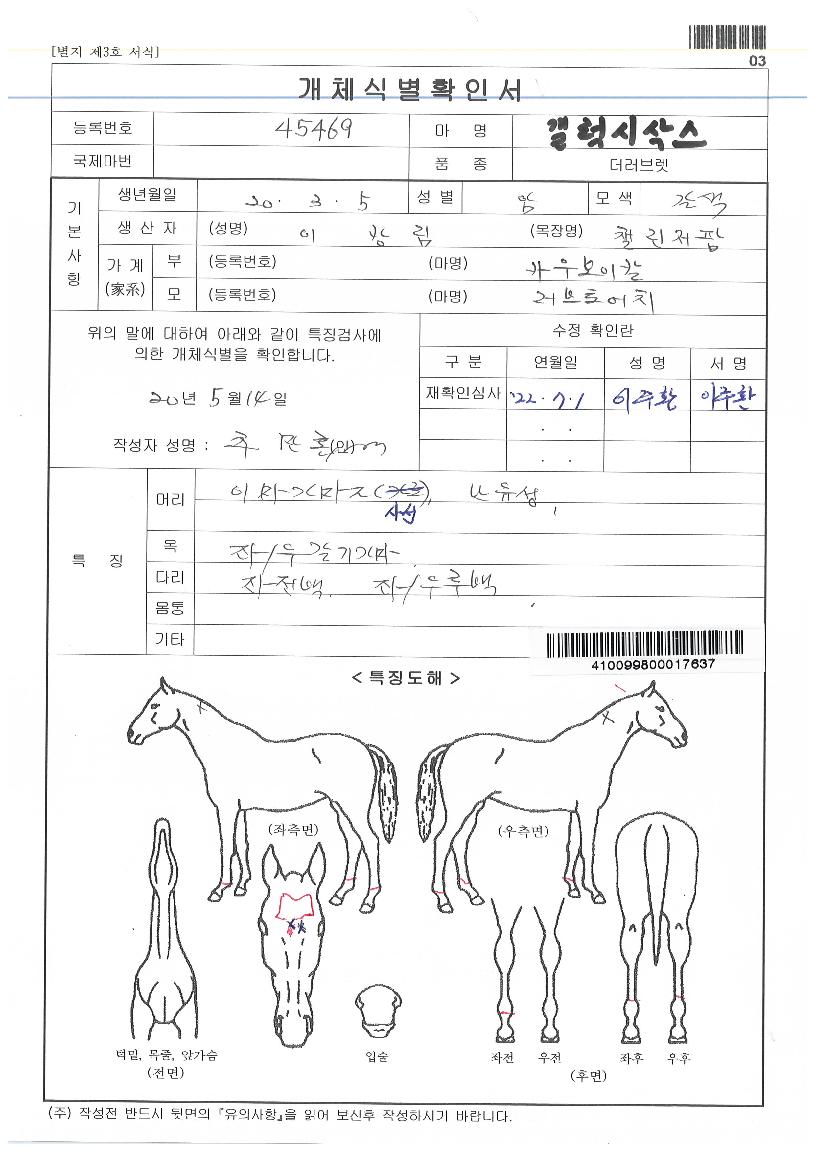 [별지 제3호 서식]
03
개체식별확인서
등록번호 45469 마 명 갤럭시삭스
국제마번 품 종 더러브렛
기본사항
생년월일 20. 3. 5 성 별 암 모 색 갈색
생 산 자 (성명) 이 광 림 (목장명) 챌린저팜
가 계 (家系) 부 (등록번호) (마명) 카우보이칼
모 (등록번호) (마명) 러브트어치
위의 말에 대하여 아래와 같이 특징검사에
의한 개체식별을 확인합니다.
20년 5월 14일
작성자 성명 :
수정 확인란
구 분 연월일 성 명 서 명
재확인심사 '22. 7. 1 이주환 이주환
. .
. .
특 징
머리 유성
사선
목 좌/우
다리 좌전백, 좌/우후백
몸통
기타
410099800017637
< 특징도해 >
(좌측면) (우측면)
턱밑, 목줄, 앞가슴
(전면)
입술
좌전 우전 좌후 우후
(후면)
(주) 작성전 반드시 뒷면의 『유의사항』을 읽어 보신후 작성하시기 바랍니다.